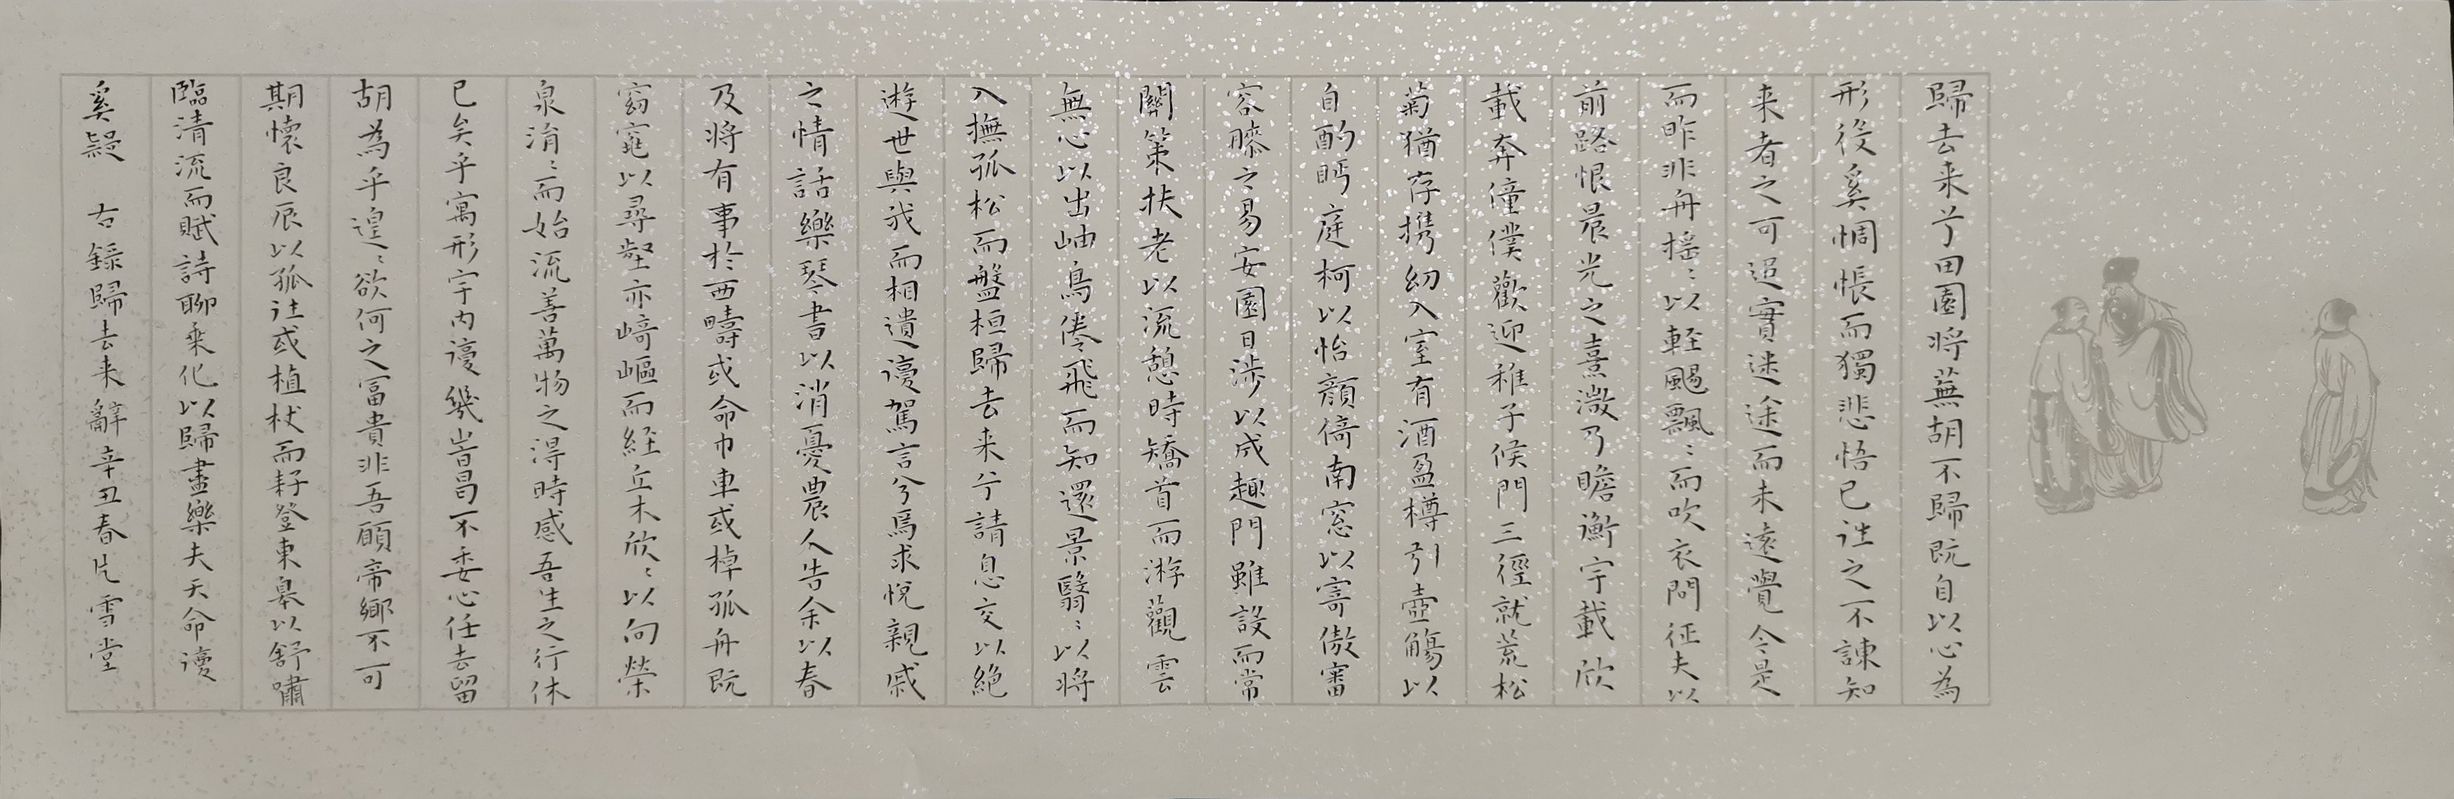 歸去来兮田園将蕪胡不歸既自以心為
形役奚惆悵而獨悲悟已往之不諫知
来者之可追實迷途而未遠覺今是
而昨非舟摇〻以輕颺飄〻而吹衣問征夫以
前路恨晨光之熹微乃瞻衡宇載欣
載奔僮僕歡迎稚子候門三徑就荒松
菊猶存携幼入室有酒盈樽引壺觴以
自酌眄庭柯以怡顔倚南窓以寄傲審
容膝之易安園日涉以成趣門雖設而常
關策扶老以流憩時矯首而游觀雲
無心以出岫鳥倦飛而知還景翳〻以将
入撫孤松而盤桓歸去来兮請息交以絶
遊世與我而相遺復駕言兮焉求悅親戚
之情話樂琴書以消憂農人告余以春
及将有事於西疇或命巾車或棹孤舟既
窈窕以尋壑亦崎嶇而経丘木欣〻以向榮
泉涓〻而始流善萬物之得時感吾生之行休
已矣乎寓形宇内復幾旹曷不委心任去留
胡為乎遑〻欲何之富貴非吾願帝鄉不可
期懷良辰以孤往或植杖而耔登東皋以舒嘯
臨清流而賦詩聊乘化以歸盡樂夫天命復
奚疑 右録歸去来辭辛丑春片雪堂